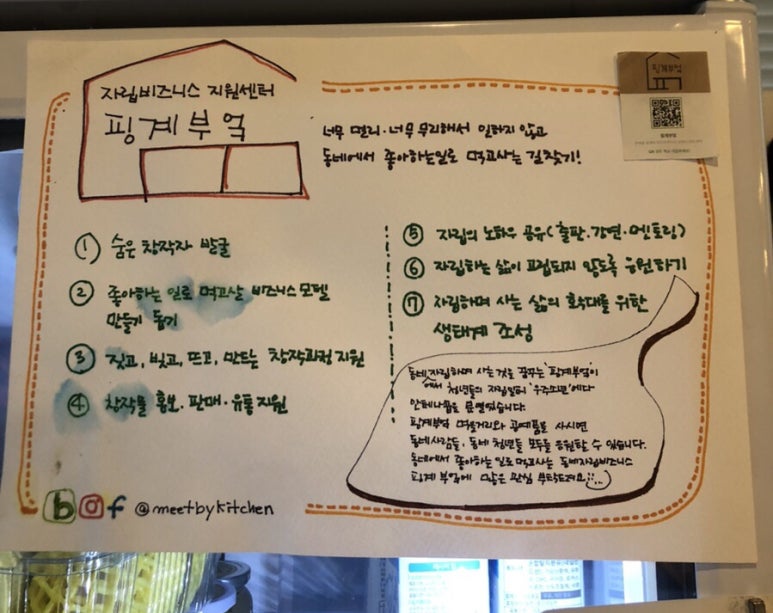 자립비즈니스 지원센터
핑계부엌
너무 멀리·너무 무리해서 일하지 않고
동네에서 좋아하는일로 먹고사는 길찾기!
핑계부엌
① 숨은 창작자 발굴
② 좋아하는 일로 먹고살 비즈니스모델
만들기 돕기
③ 짓고, 빚고, 뜨고, 만드는 창작과정 지원
④ 창작물 홍보·판매·유통지원
⑤ 자립의 노하우 공유(출판·강연·멘토링)
⑥ 자립하는 삶이 고립되지 않도록 응원하기
⑦ 자립하며 사는 삶의 확대를 위한
생태계 조성
동네에서 자립하며 사는것을 꿈꾸는 '핑계부엌'이
청년들의 자립일터 '우주소년'에다
문열었습니다.
핑계부엌 먹을거리와 공예품을 사시면
동네사람들, 동네 청년들 모두를 응원할 수 있습니다.
동네에서 좋아하는 일로 먹고사는 동네자립비즈니스
핑계부엌에 많은 관심 부탁드려요
b f @meetbykitchen